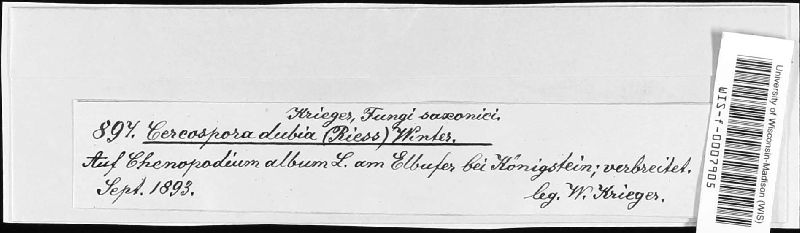 Krieger, Fungi saxonici.
897. Cercospora dubia (Riess) Winter.
Auf Chenopodium album L. am Elbufer bei Königstein; verbreitet.
Sept. 1893.
leg. W. Krieger.
University of Wisconsin-Madison (WIS)
WIS-f-0007905